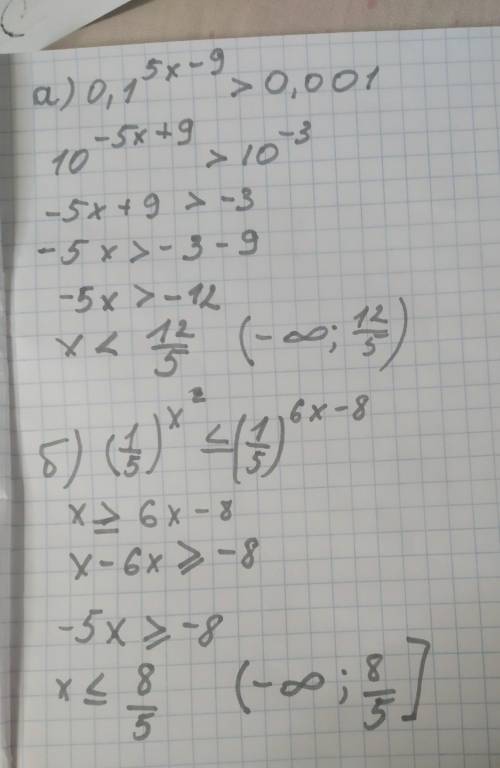 а) 0,1^(5x-9) > 0,001
10^(-5x+9) > 10^(-3)
-5x+9 > -3
-5x > -3-9
-5x > -12
x < 12/5 (-∞; 12/5)
б) (1/5)^(x²) ≤ (1/5)^(6x-8)
x ≥ 6x-8
x-6x ≥ -8
-5x ≥ -8
x ≤ 8/5 (-∞; 8/5]